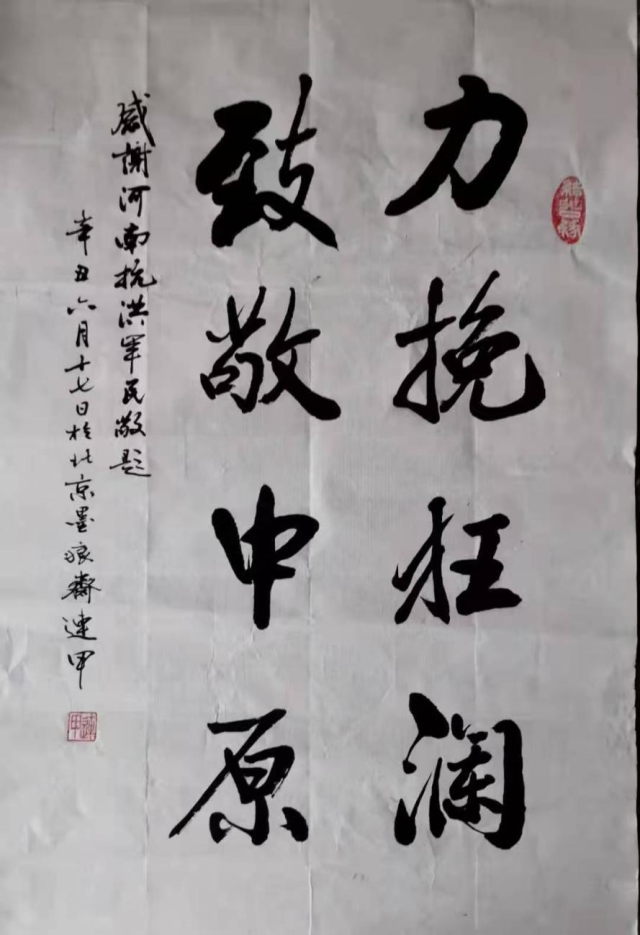 力挽狂澜
致敬中原
感謝河南抗洪军民敬题
辛丑六月十七日於北京墨浪斋连甲